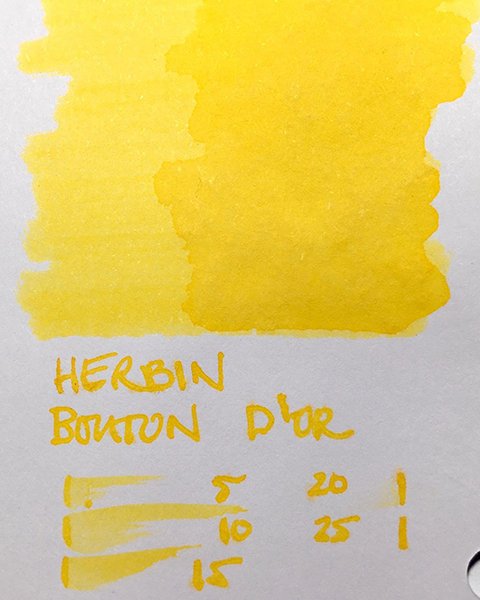 HERBIN
BOUTON D'OR
5 20
10 25
15